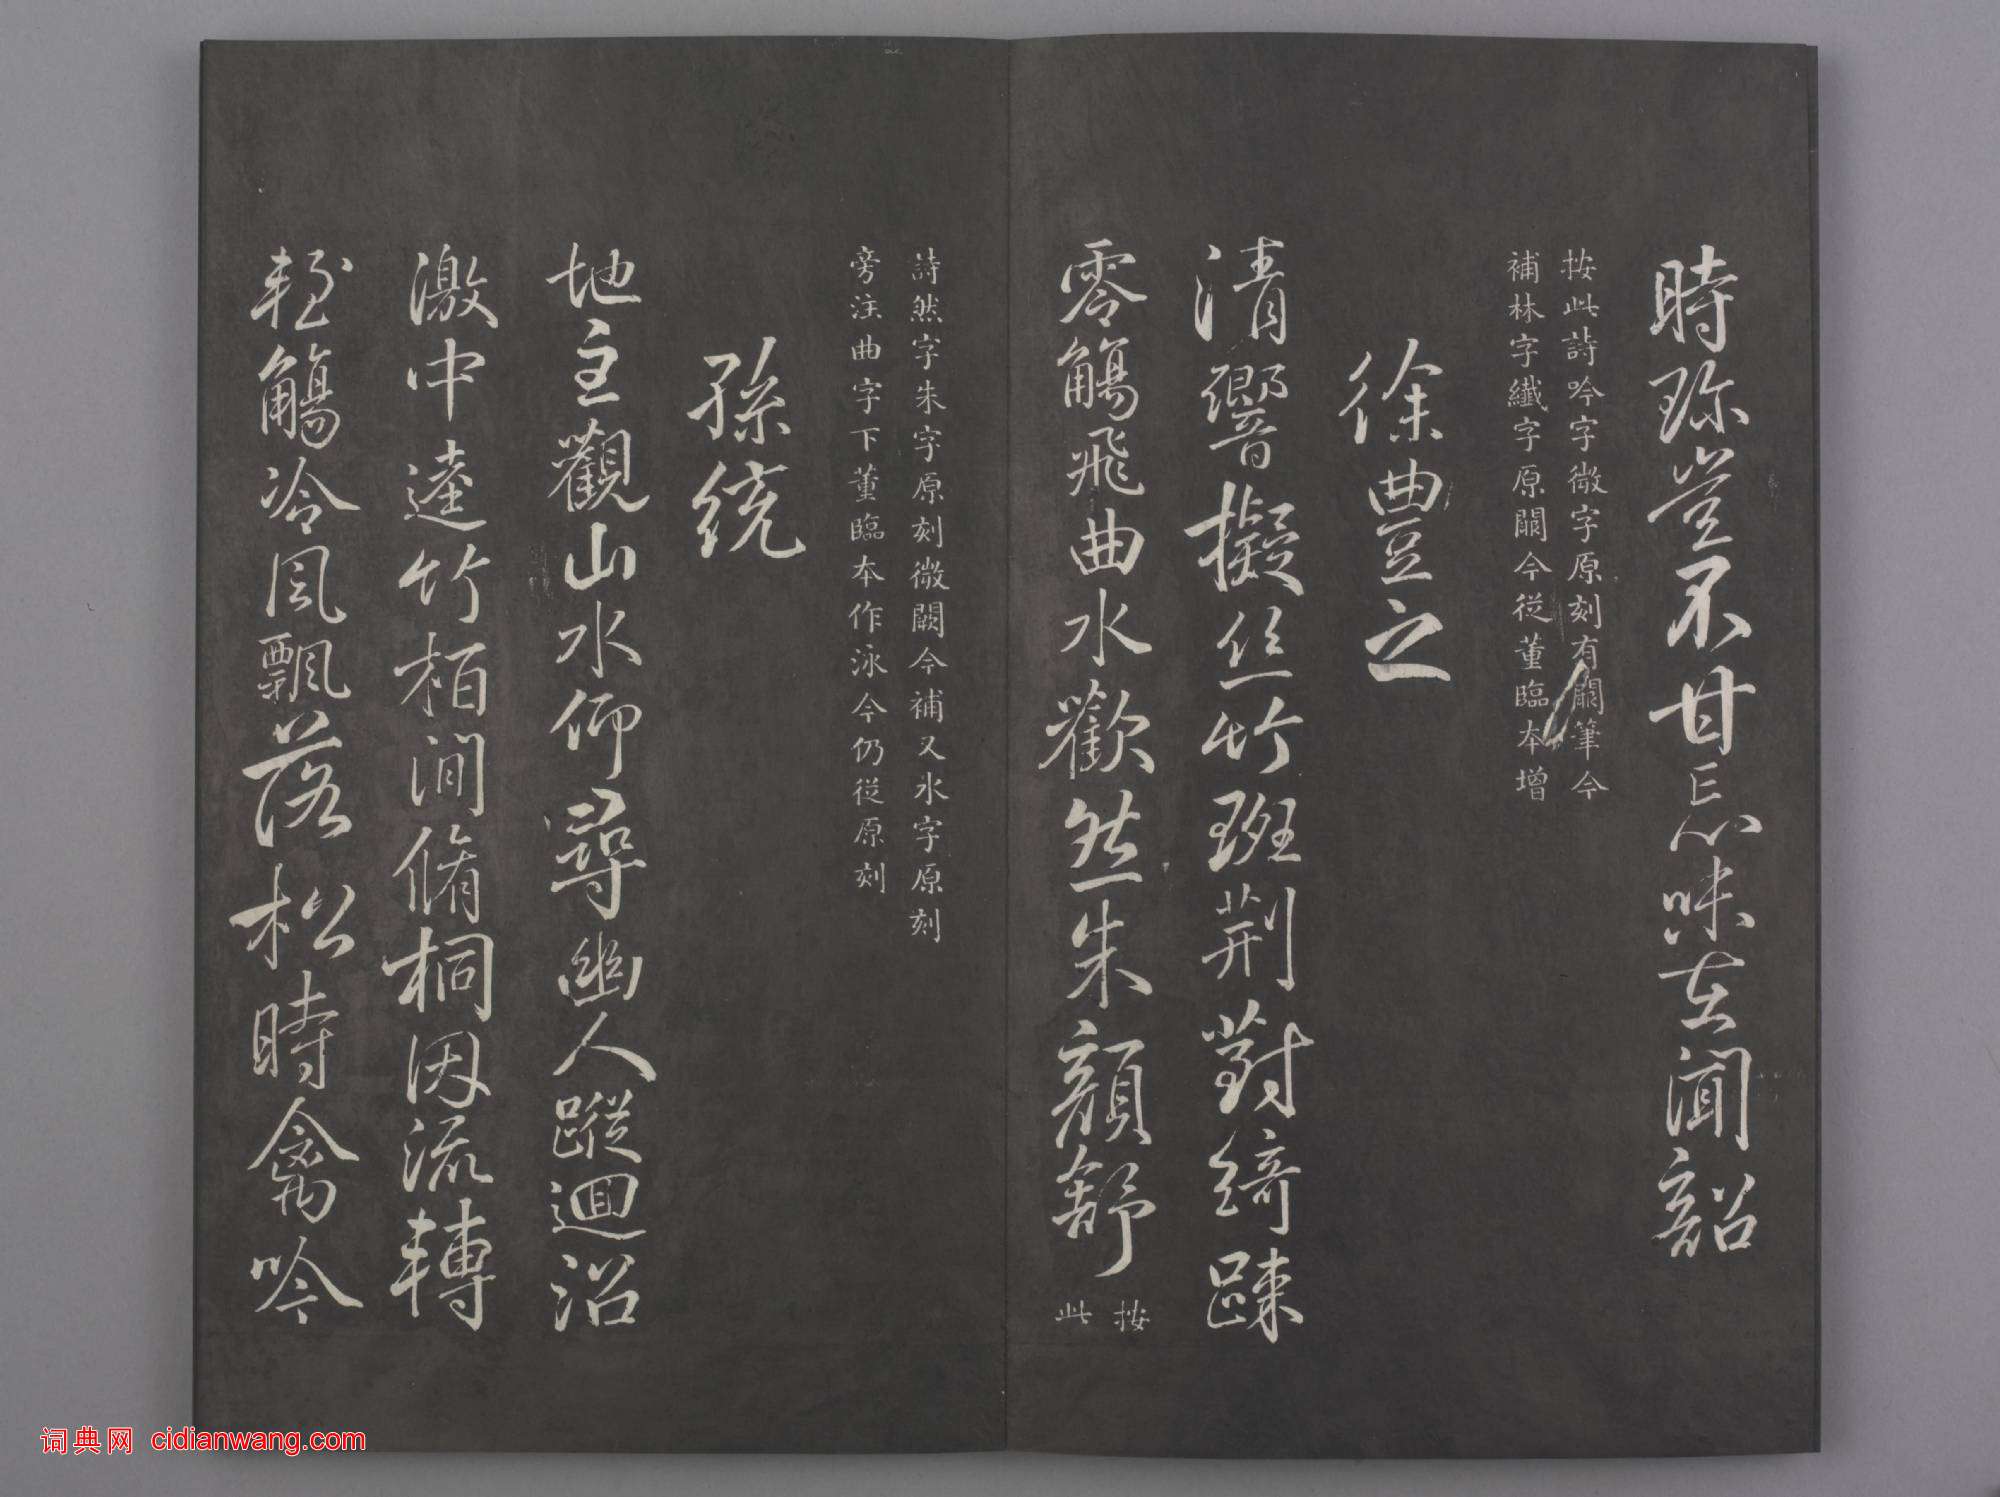 時珎豈不甘忘味在聞韶
按此詩吟字微字原刻有闕筆今
補林字纖字原闕今從董臨本增
徐豐之
清響擬絲竹班荆對綺疎
零觴飛曲水歡然朱顔舒
按
此
詩然字朱字原刻微闕今補又水字原刻
旁注曲字下董臨本作泳今仍從原刻
孫統
地主觀山水仰尋幽人蹤迴沼
激中逵竹栢間脩桐因流轉
輕觴冷風飄落松時禽吟
词典网 cidianwang.com